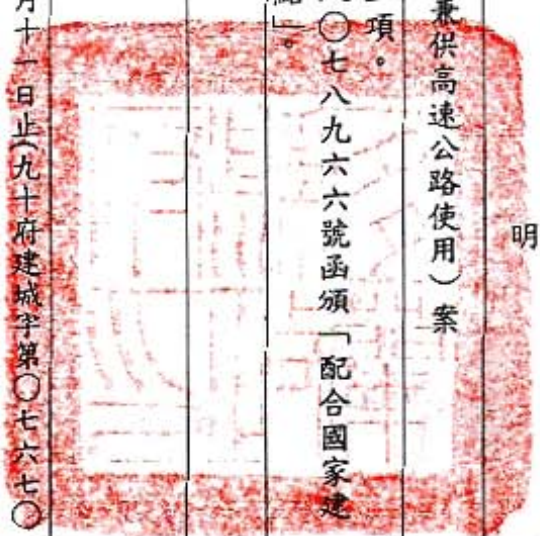 明
兼供高速公路使用）案
項。
〇七八九六六號函頒「配合國家建
」。
月十一日止(九十府建城字第〇七六七〇